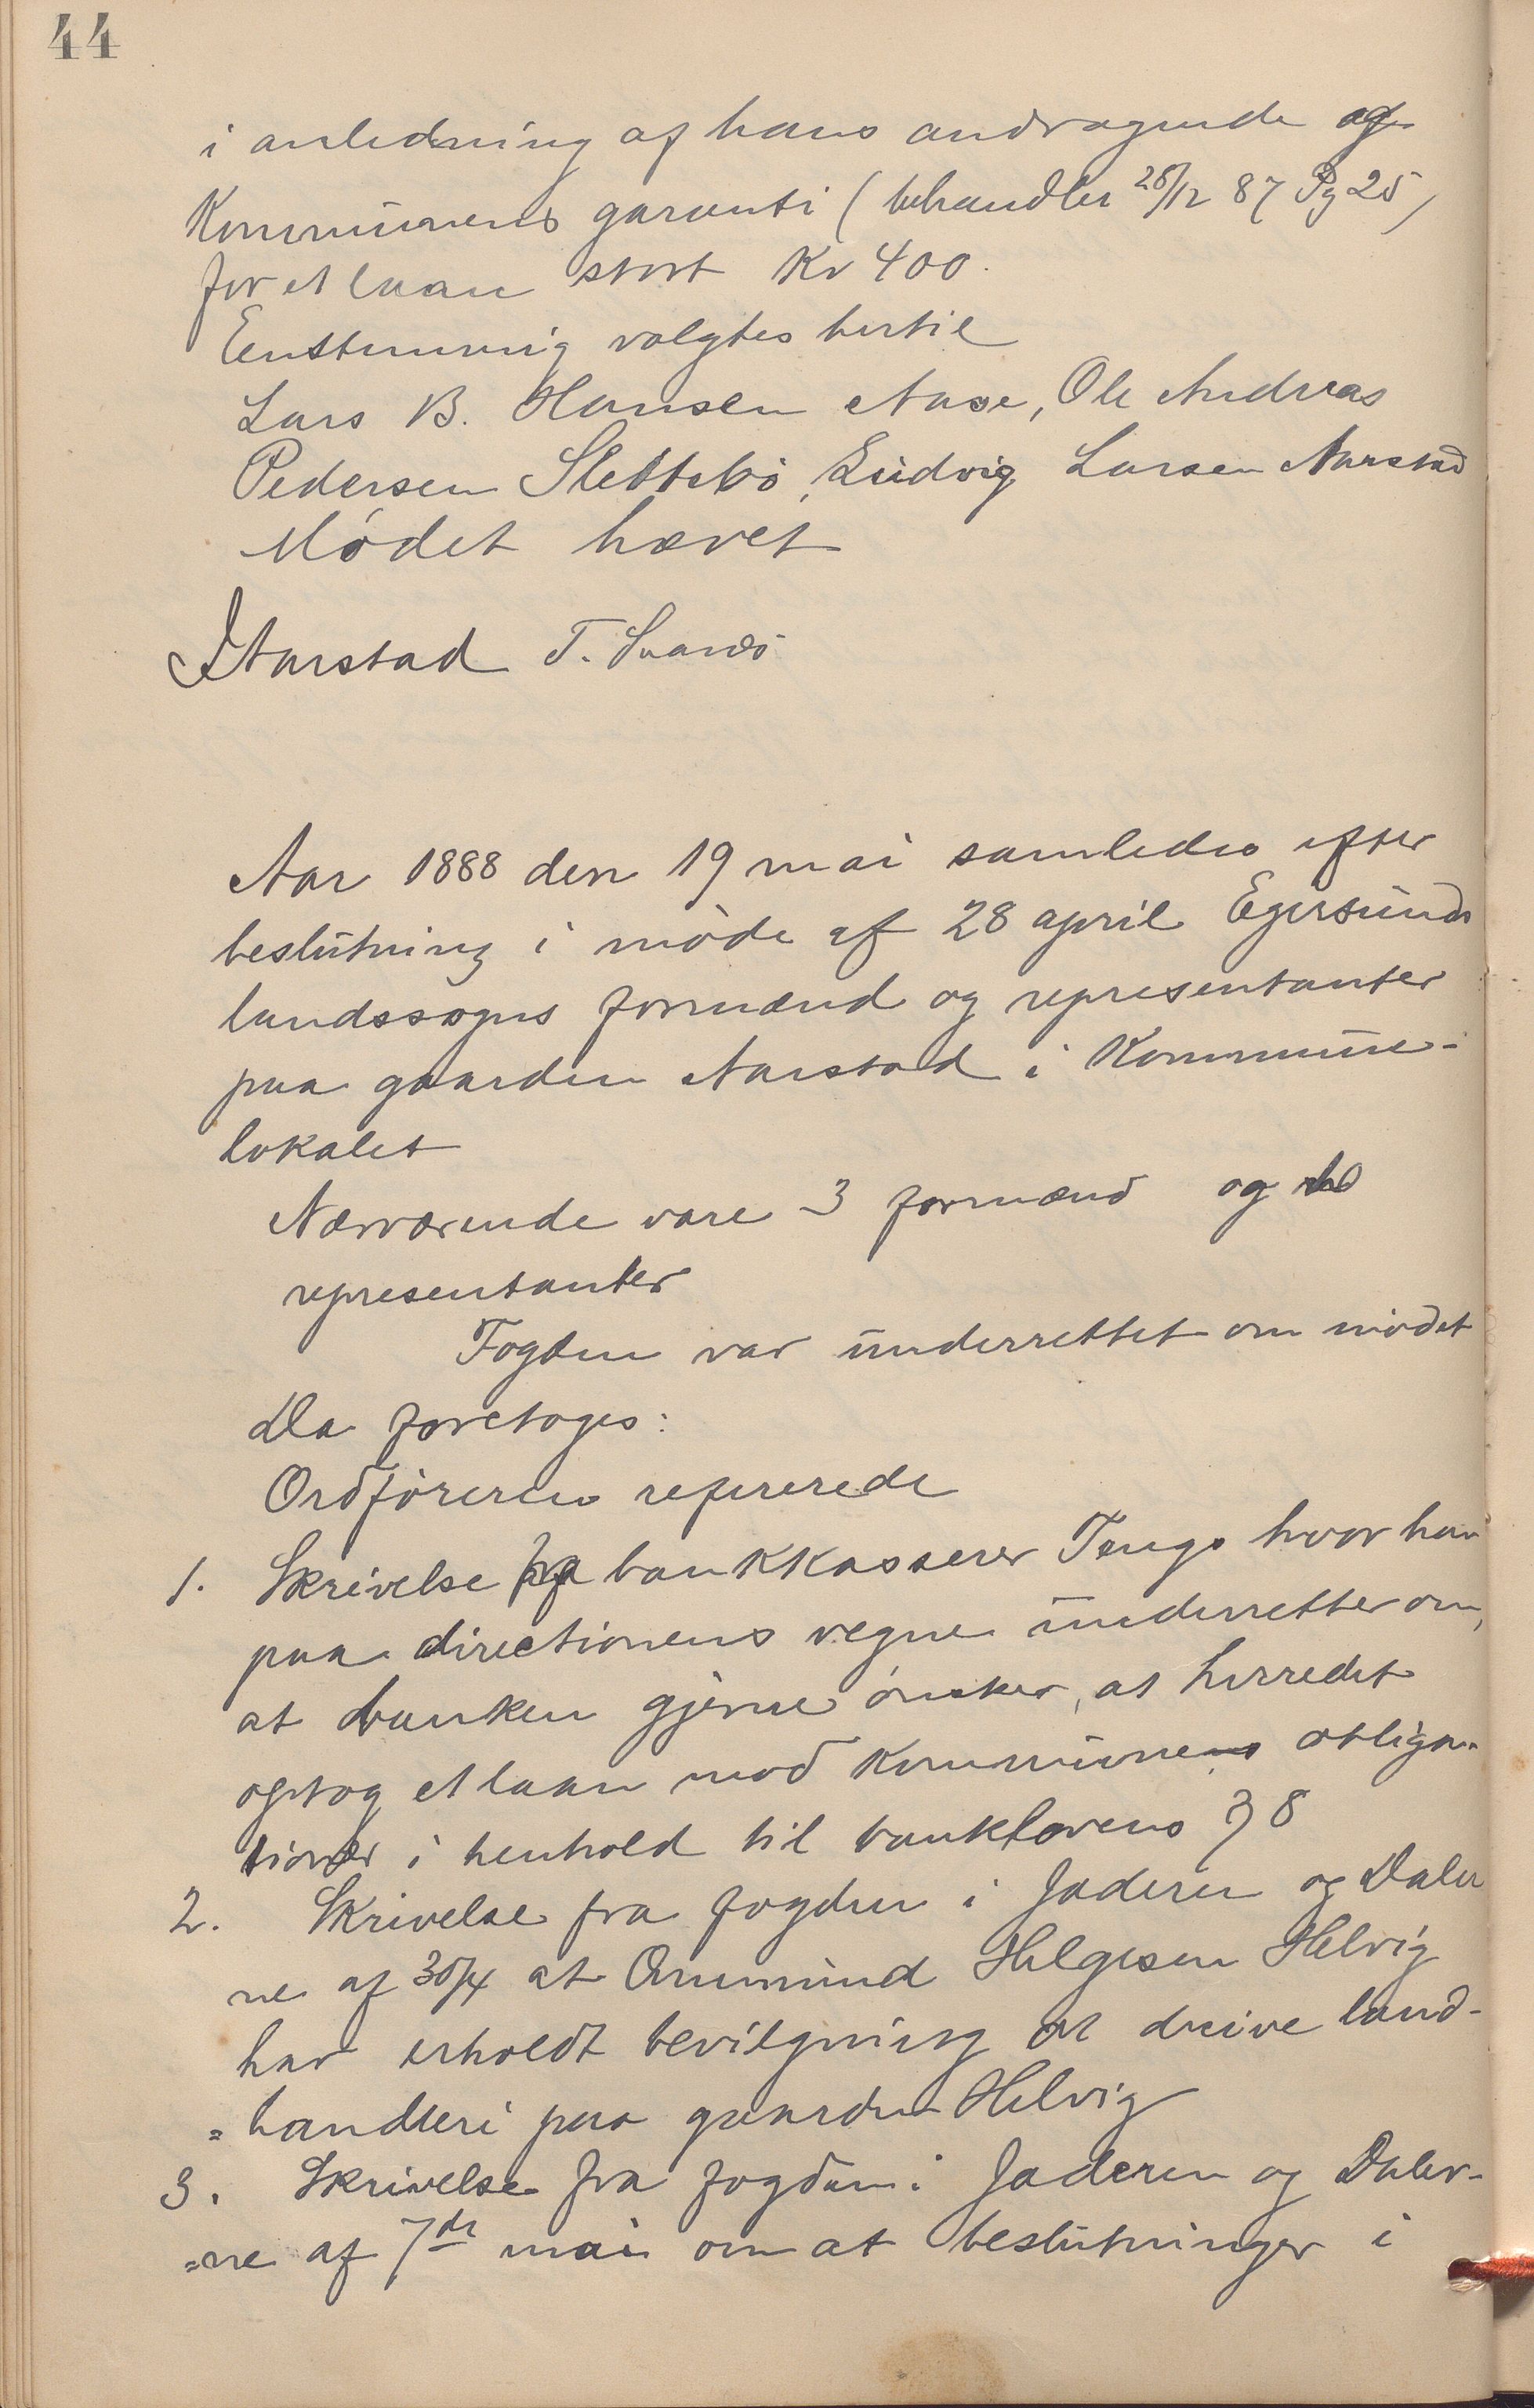 44
i anledning af hans andragende og
Kommunens garanti (behandlet 28/12 87 Pg 25)
for et laan stort Kr 400.
Eenstemmig valgtes hertil
Lars B. Hansen Aase, Ole Andreas
Pedersen Slettebø, Ludvig Larsen Aarstad
Mødet hævet
Aarstad T. Svanes
Aar 1888 den 19 mai samledes efter
beslutning i møde af 28 april Egersunds
landssogns formænd og representanter
paa gaarden Aarstad i Kommune-
lokalet
Nærværende vare 3 formænd og
representanter
Fogden var underrettet om mødet
Da foretoges:
Ordføreren refererede
1. Skrivelse fra bankkasserer Tengs hvor han
paa directionens vegne underretter om,
at banken gjerne ønsker, at herredet
optog et laan mod kommunens obliga-
tioner i henhold til banklovens § 8
2. Skrivelse fra fogden i Jæderen og Daler
ne af 30/4 at Ommund Helgesen Helvig
har erholdt bevilgning at drive land-
=handleri paa gaarden Helvig
3. Skrivelse fra fogden i Jæderen og Daler-
=ne af 7de mai om at beslutninger i